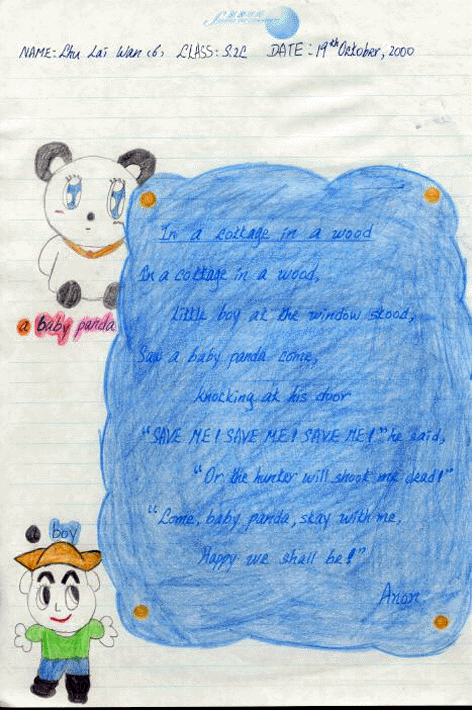 NAME: Chu Lai Wan (6) CLASS: S.2C DATE: 19th October, 2000
In a cottage in a wood
In a cottage in a wood,
Little boy at the window stood,
Saw a baby panda come,
knocking at his door
"SAVE ME! SAVE ME! SAVE ME!" he said,
"Or the hunter will shoot me dead!"
"Come, baby panda, stay with me,
Happy we shall be!"
Anon
a baby panda
a boy